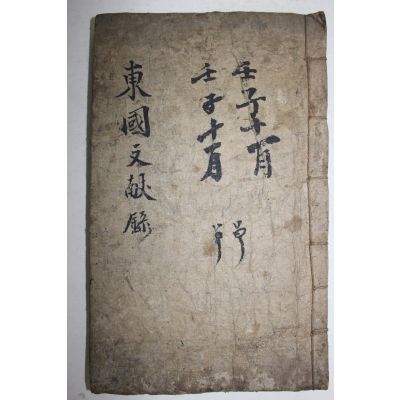 壬子十月
壬子十月
東國文献錄